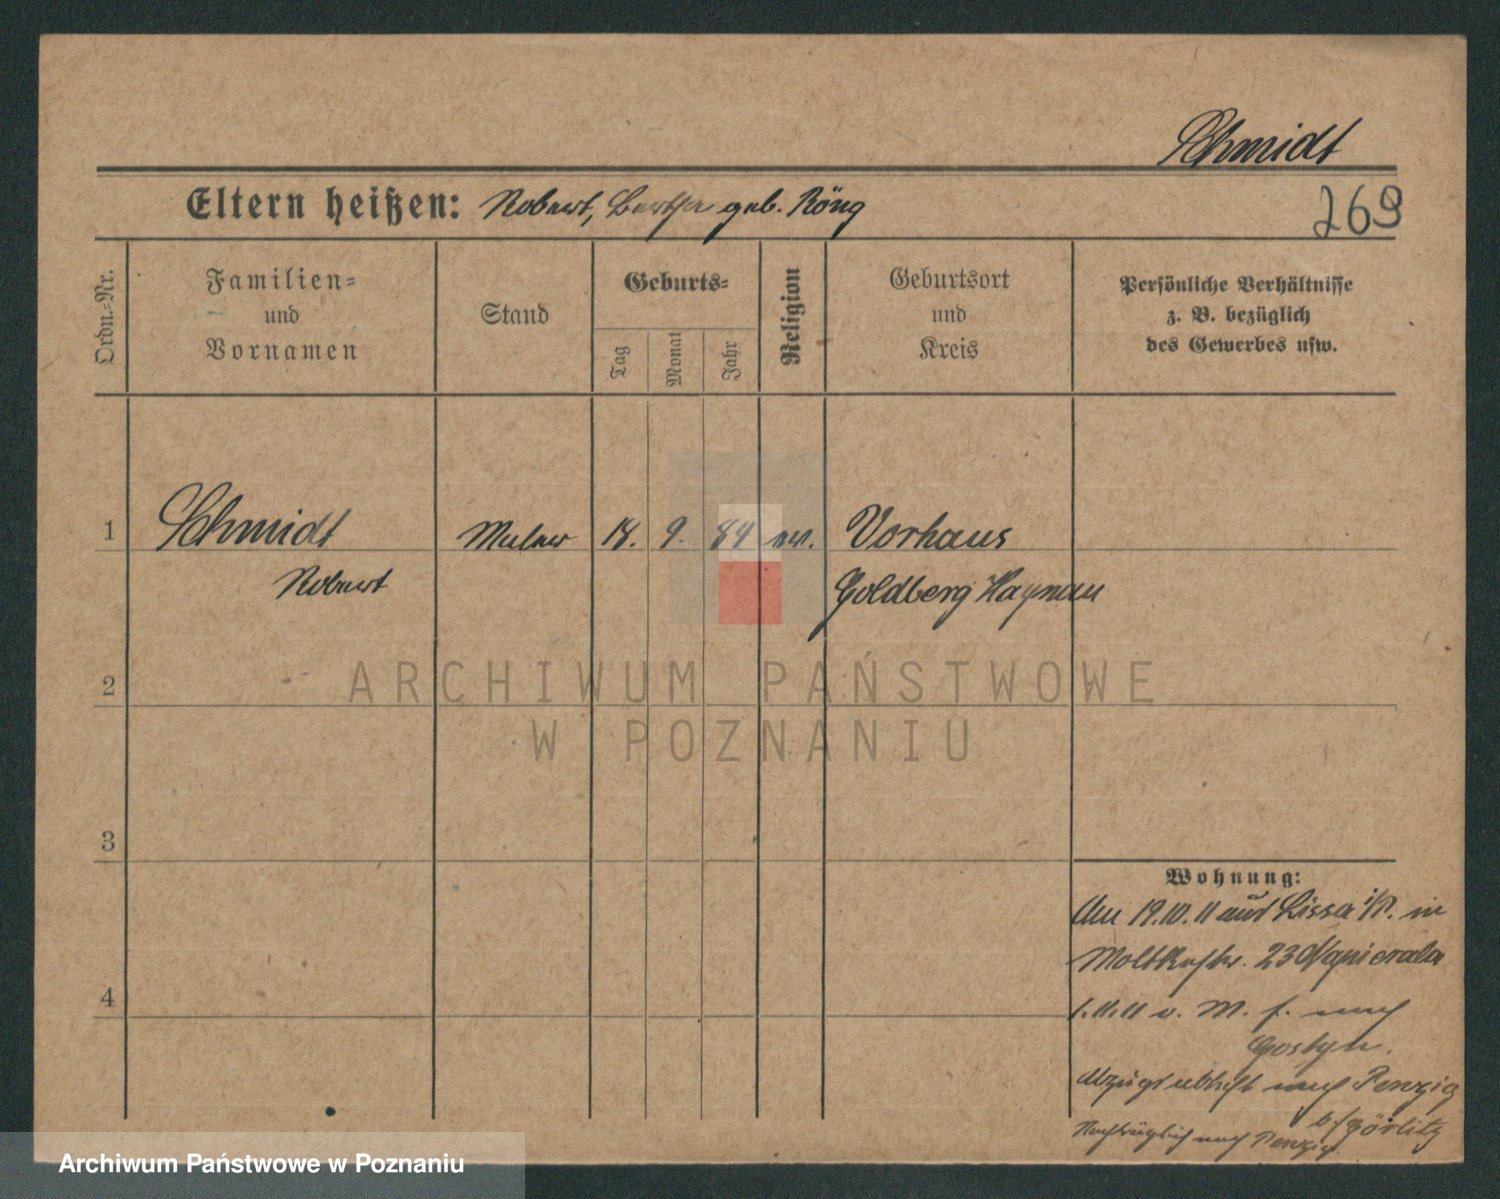 Schmidt
Eltern heißen: Robert, Bertha geb. Röng
269
Ordn.=Nr.
Familien=
und
Vornamen
Stand
Geburts=
Tag
Monat
Jahr
Religion
Geburtsort
und
Kreis
Persönliche Verhältnisse
z. B. bezüglich
des Gewerbes usw.
1 Schmidt Maler 18. 9. 84 ev. Vorhaus
Robert Goldberg Haynau
ARCHIWUM PAŃSTWOWE
2
W POZNANIU
3
Wohnung:
19.10.11 aus Lissa i/P. in
Moltkestr. 23 Napierala
4
1.11.11 v. M. f. nach
Gostyn.
nach Penzig
b/Görlitz
Nachträglich nach Penzig
Archiwum Państwowe w Poznaniu